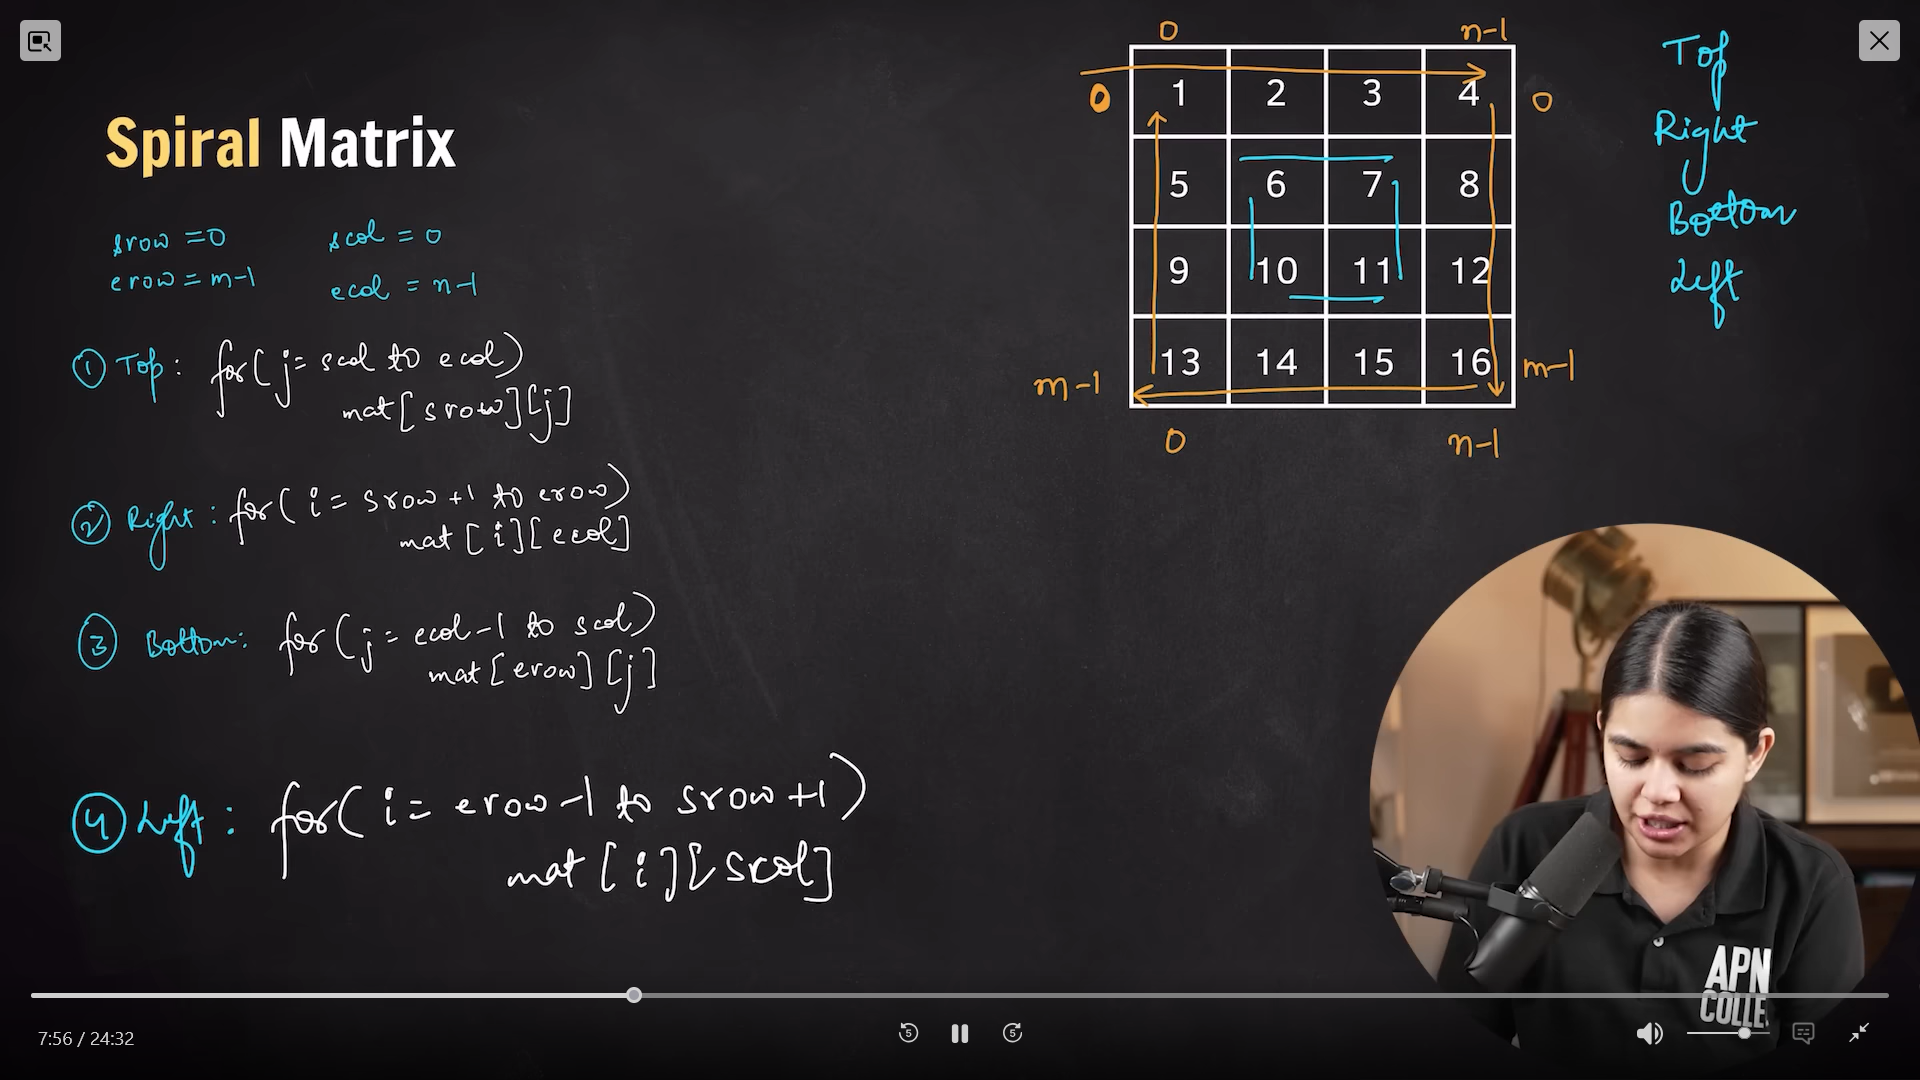 Spiral Matrix
srow = 0
scol = 0
erow = m-1
ecol = n-1
① Top: for( j = scol to ecol)
mat[srow][j]
② Right: for( i = srow+1 to erow)
mat[i][ecol]
③ Bottom: for( j = ecol-1 to scol)
mat[erow][j]
④ Left: for( i = erow-1 to srow+1)
mat[i][scol]
0 n-1
0 1 2 3 4 0
5 6 7 8
9 10 11 12
m-1 13 14 15 16 m-1
0 n-1
Top
Right
Bottom
Left
APN
COLLE
7:56 / 24:32
5
5